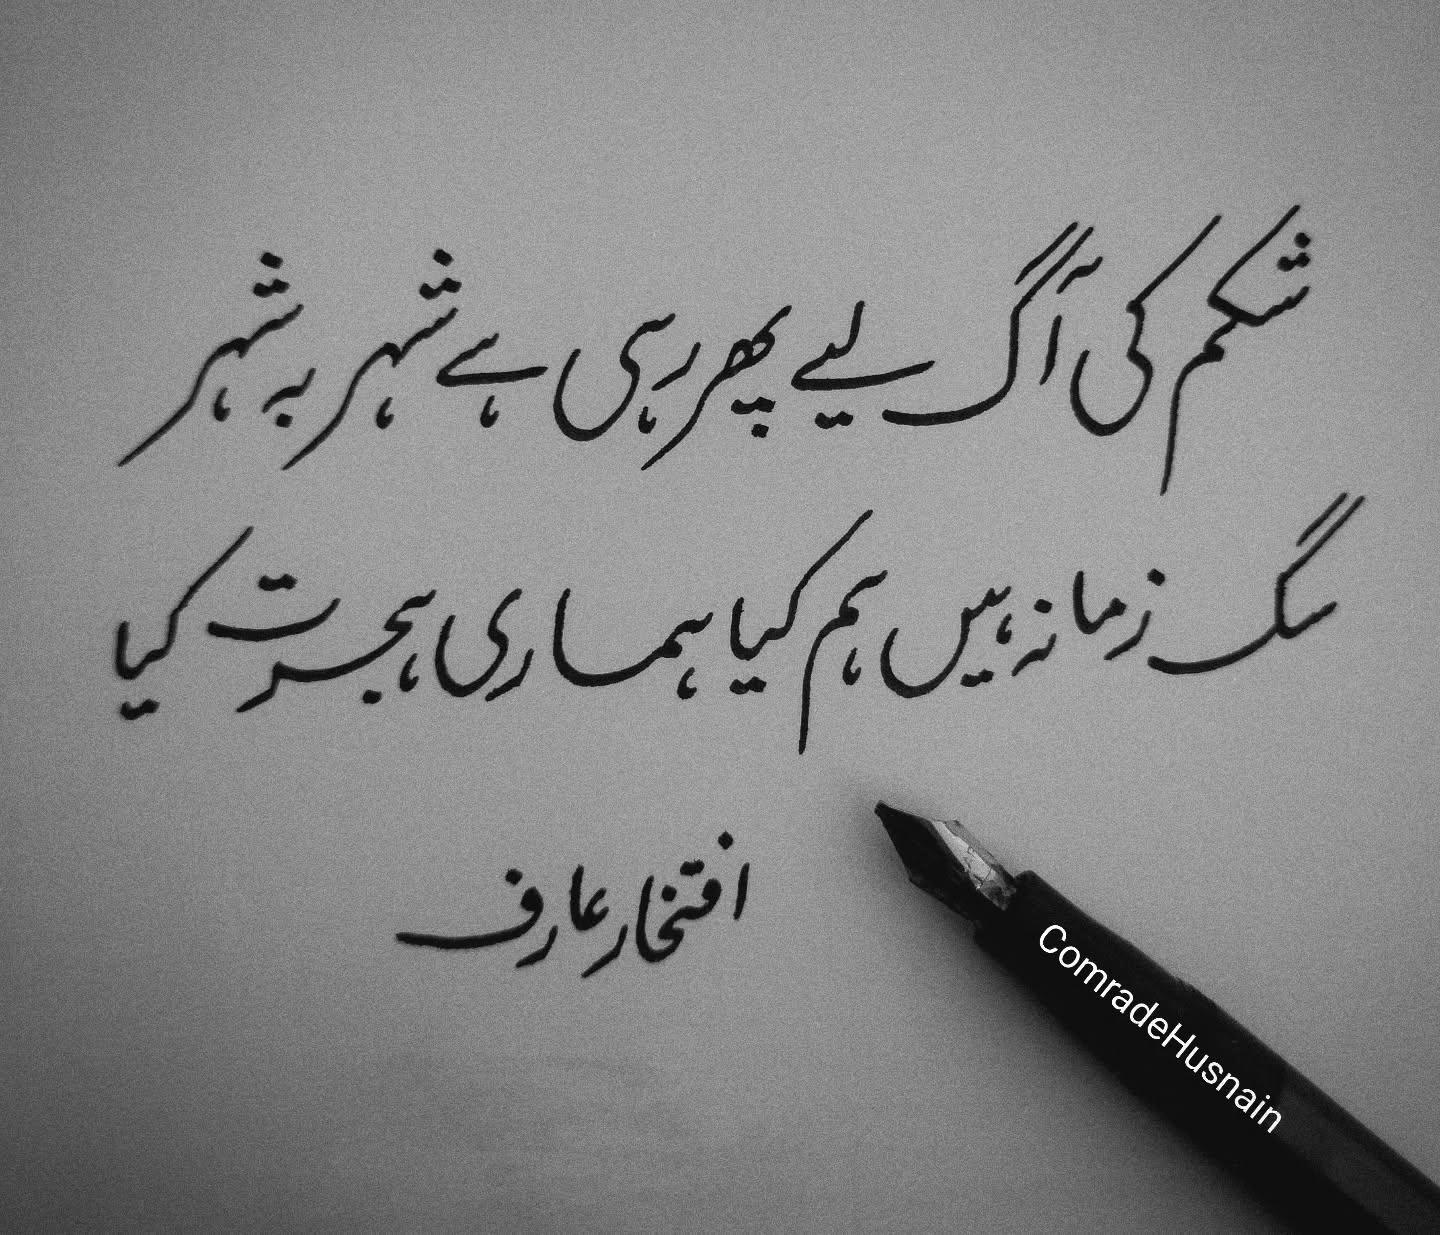 شکم کی آگ لیے پھر رہی ہے شہر بہ شہر
سگ زمانہ ہیں ہم کیا ہماری ہجرت کیا
افتخار عارف
ComradeHusnain